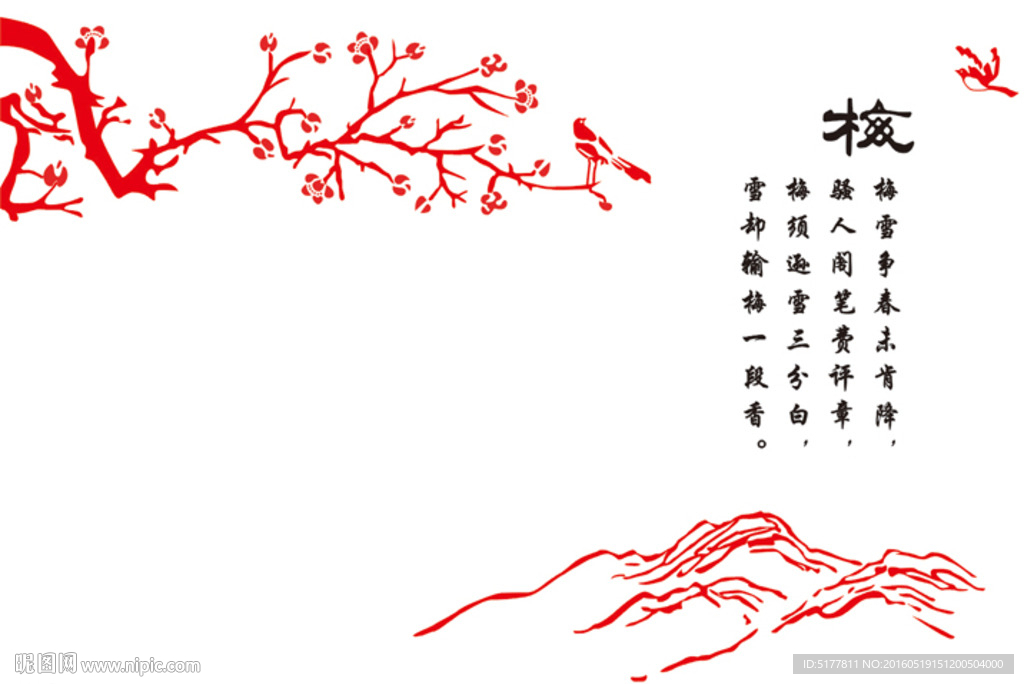 梅
梅雪争春未肯降，
骚人阁笔费评章，
梅须逊雪三分白，
雪却输梅一段香。
昵图网 www.nipic.com
ID:5177811 NO:20160519151200504000